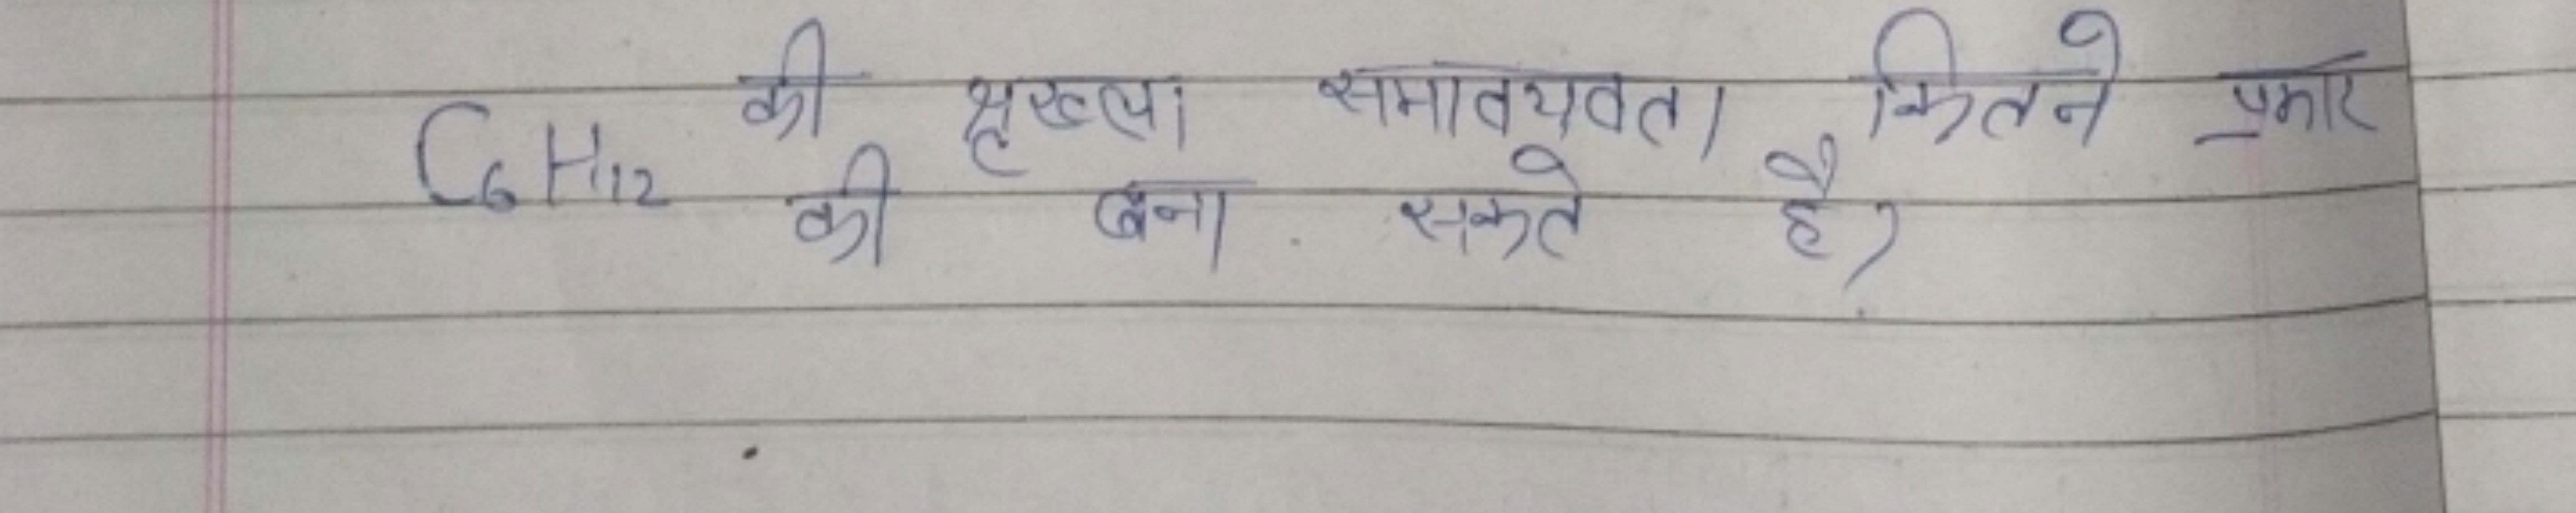 C6H12 की श्रृखला समावयवता कितने प्रकार
की बना सकते है?